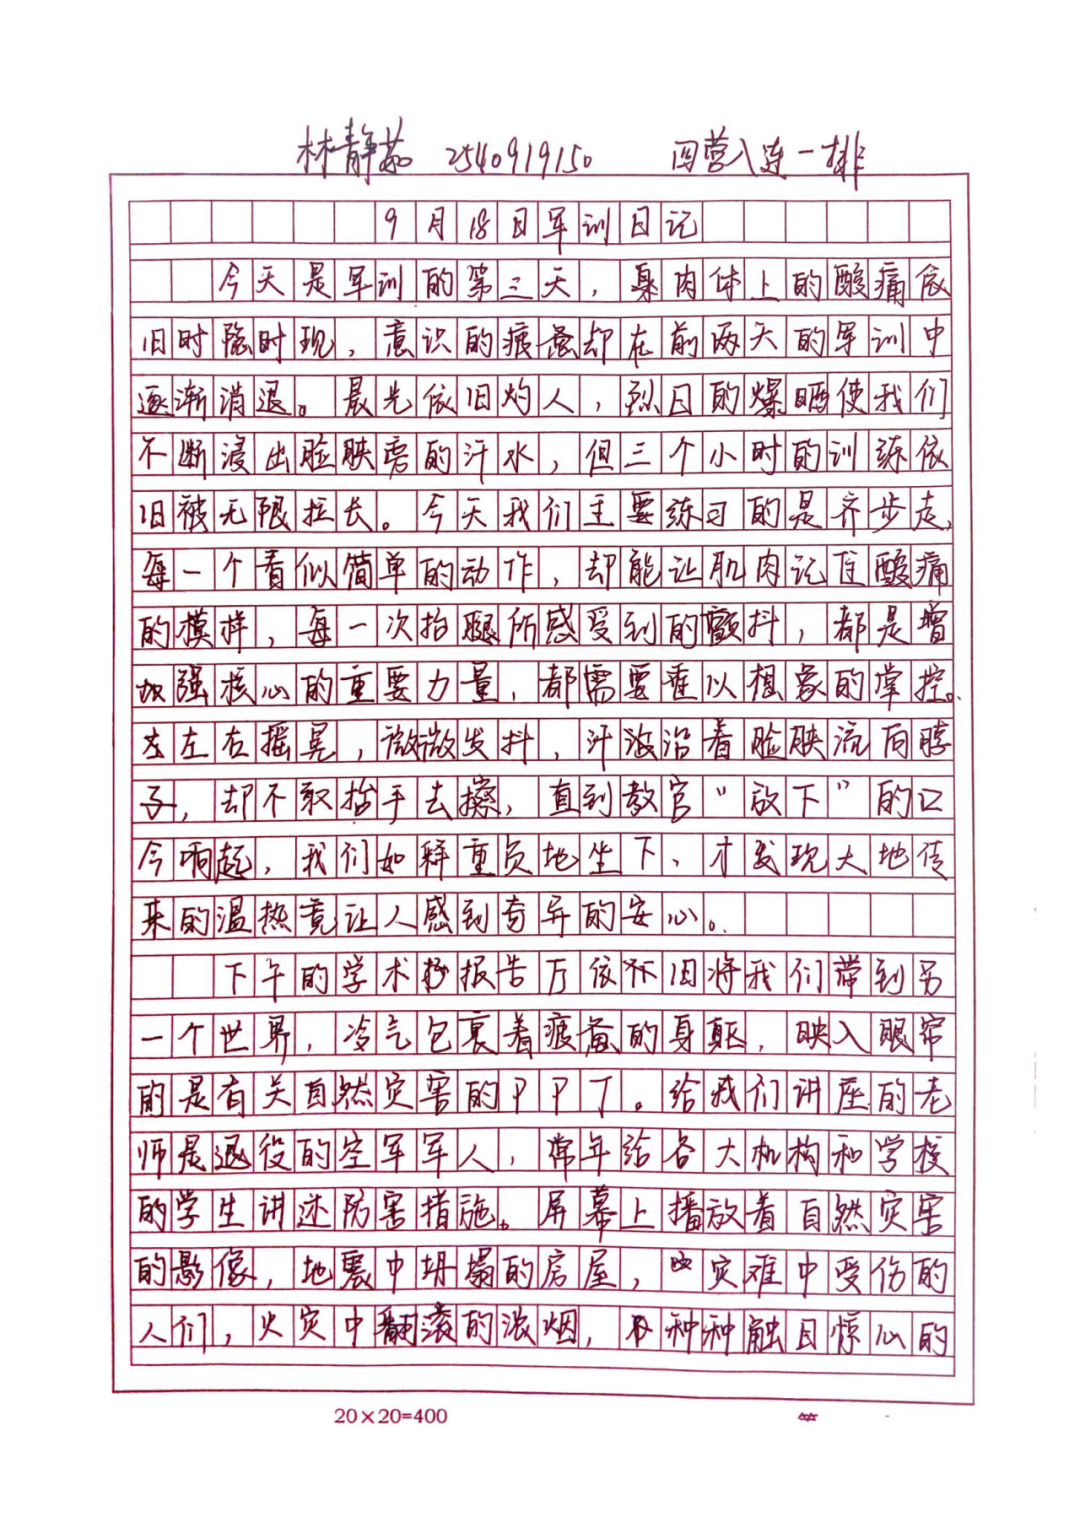 林静茹 2540919150 四营八连一排
9月18日军训日记
今天是军训的第三天，身肉体上的酸痛依
旧时隐时现，意识的疲惫却在前两天的军训中
逐渐消退。晨光依旧灼人，烈日的爆晒使我们
不断浸出脸颊旁的汗水，但三个小时的训练依
旧被无限拉长。今天我们主要练习的是齐步走，
每一个看似简单的动作，却能让肌肉记住酸痛
的模样，每一次抬腿所感受到的颤抖，都是增
加强核心的重要力量，都需要难以想象的掌控。
左右摇晃，微微发抖，汗液沿着脸颊流向脖
子，却不敢抬手去擦，直到教官“放下”的口
令响起，我们如释重负地坐下，才发现大地传
来的温热竟让人感到奇异的安心。
下午的学术报告厅依旧将我们带到另
一个世界，冷气包裹着疲惫的身躯，映入眼帘
的是有关自然灾害的PPT。给我们讲座的老
师是退役的空军军人，常年给各大机构和学校
的学生讲述防害措施。屏幕上播放着自然灾害
的影像，地震中坍塌的房屋，灾难中受伤的
人们，火灾中翻滚的浓烟，种种触目惊心的
20×20=400
第